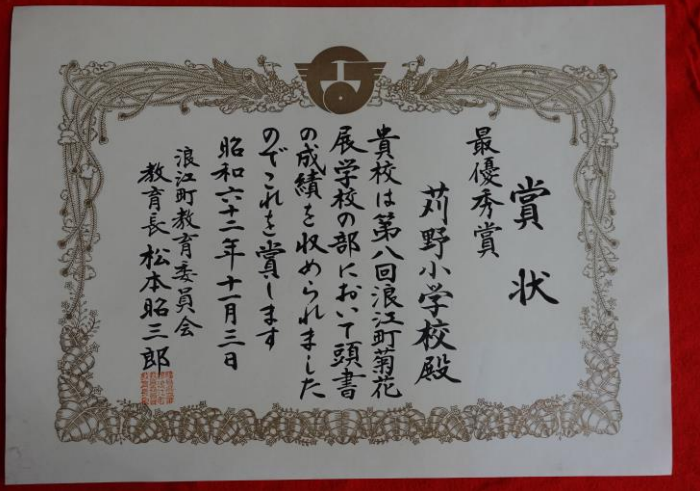 賞状
最優秀賞
苅野小学校殿
貴校は第八回浪江町菊花
展学校の部において頭書
の成績を収められました
のでこれを賞します
昭和六十二年十一月三日
浪江町教育委員会
教育長 松本昭三郎